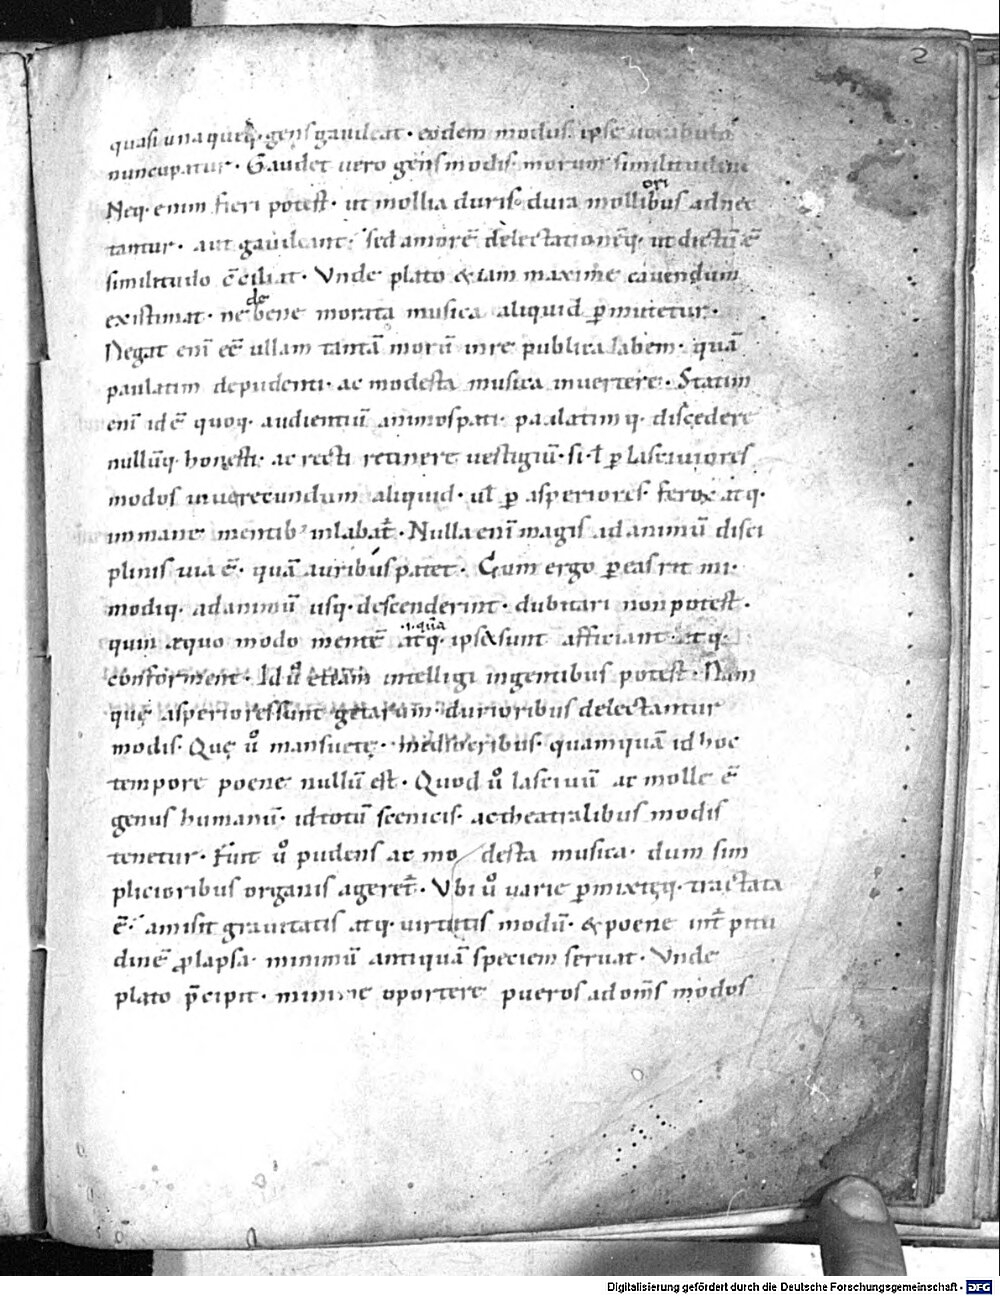 2
quasi una queq; gens gaudeat · eodem modus ipse uocabulo
nuncupatur · Gaudet uero gens modis morum similitudine
Neq· enim fieri potest · ut mollia duris· dura mollibus adnec
ori
tantur · aut gaudeant · sed amorē delectationēq· ut dictū ē
similitudo cēciliat · Vnde plato &iam maxime cauendum
existimat · ne bene morata musica aliquid ꝑmutetur ·
de
Negat eni eē ullam tantā morū inre publica labem · quā
paulatim depudenti · ac modesta musica inuertere · Statim
eni idē quoq· audientiū animos pati · paulatimq· discedere
nullūq· honesti · ac recti retinere uestigiū · si · ł ꝑ lasciuiores
modos inuerecundum aliquid · ul ꝑ asperiores ferox atq·
immane mentib' inlabat̄ · Nulla eni magis ad animū disci
plinis uia ē · quā auribus patet · Cum ergo ꝑ eas rit mi ·
modiq· ad animū usq· descenderint · dubitari non potest ·
quin æquo modo mentē atq· ips&sunt afficiant · atq·
·i· quā
conforment · Id ů etiam intelligi ingentibus potest · Nam
quę asperiores sunt getarum · durioribus delectantur
modis · Quę ů mansuetę · mediocribus · quamquā id hoc
tempore poene nullū est · Quod ů lasciuū ac molle ē
genus humanū · id totū scenicis · ac theatralibus modis
tenetur · Fuit ů pudens ac modesta musica · dum sim
plicioribus organis ageret̄ · Vbi ů uarie ꝑmixtęq· tractata
ē · amisit grauitatis atq· uirtutis modū · & poene int̄ pitu
dinē ꝓlapsa · minimū antiquā speciem seruat · Vnde
plato p̄cipit · minime oportere pueros ad om̄s modos
Digitalisierung gefördert durch die Deutsche Forschungsgemeinschaft · DFG